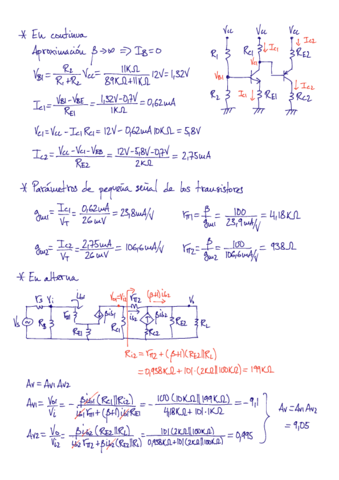 * En continua
Aproximación β→∞ ⇒ IB=0
VB1 = R2/(R1+R2) VCC = 11KΩ/(89KΩ+11KΩ) 12V = 1,32V
IC1 = (VB1-VBE)/RE1 = (1,32V-0,7V)/1KΩ = 0,62mA
VC1 = VCC - IC1 RC1 = 12V - 0,62mA 10KΩ = 5,8V
IC2 = (VCC-VC1-VEB)/RE2 = (12V-5,8V-0,7V)/2KΩ = 2,75mA
VCC VCC VCC
R1 RC1 IC1 RE2 IC2
VC1
VB1
R2 IC1 RE1 IC2 RC2
* Parámetros de pequeña señal de los transistores
gm1 = IC1/VT = 0,62mA/26mV = 23,8mA/V rπ1 = β/gm1 = 100/23,9mA/V = 4,18KΩ
gm2 = IC2/VT = 2,75mA/26mV = 106,6mA/V rπ2 = β/gm2 = 100/106,6mA/V = 938Ω
* En alterna
Vi ib1 rπ2 (β+1)ib2 Vo
Vs RB rπ1 βib1 RC1 ib2 βib2 RE2 RL
RE1 RC2
Ri2 = rπ2 + (β+1)(RE2||RL)
= 0,938KΩ + 101·(2KΩ||100KΩ) = 199KΩ
AV = AV1 AV2
AV1 = Vo1/Vi = - βib1(RC1||Ri2)/(ib1 rπ1 + (β+1)ib1 RE1) = - 100(10KΩ||199KΩ)/(4,18KΩ + 101·1KΩ) = -9,1
AV2 = = 101(2KΩ||100KΩ)/(0,938KΩ+101(2KΩ||100KΩ)) = 0,995
AV = AV1 AV2
= 9,05